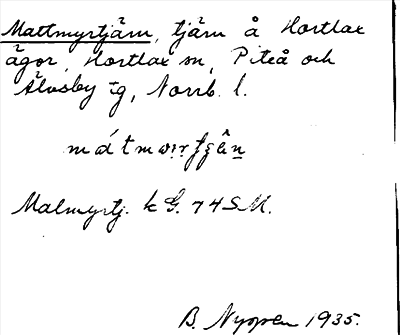 Mattmyrtjärn, tjärn å Hortlax
ägor, Hortlax sn, Piteå och
Älvsby tg, Norrb. l.
Malmyrtj. k G. 74 S M.
B. Nyppen 1935.